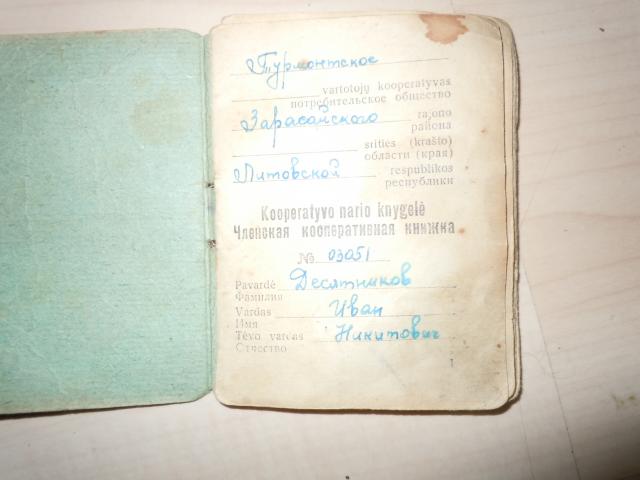 Турмонтское
vartotojų kooperatyvas
потребительское общество
Зарасайского rajono
района
srities (krašto)
области (края)
Литовской respublikos
республики
Kooperatyvo nario knygelė
Членская кооперативная книжка
№ 03051
Pavardė Десятников
Фамилия
Vardas Иван
Имя
Tėvo vardas Никитович
Отчество
1